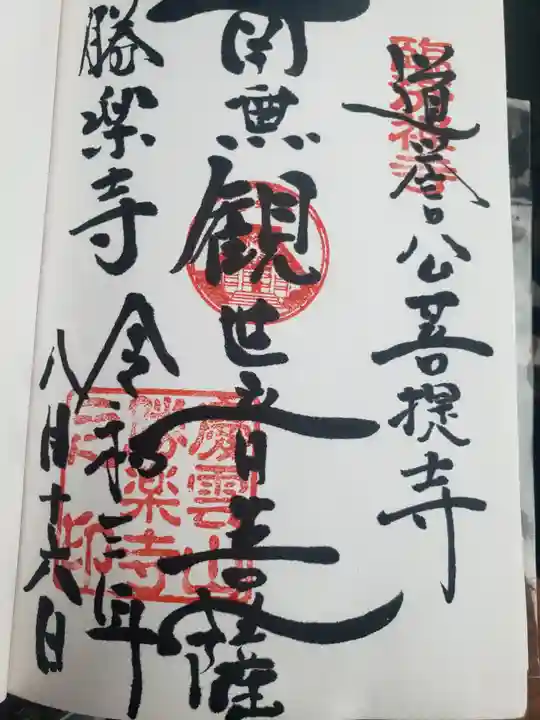 道誉公菩提寺
南無観世音菩薩
勝楽寺
令和三年
八月十六日
慶雲山
勝楽寺